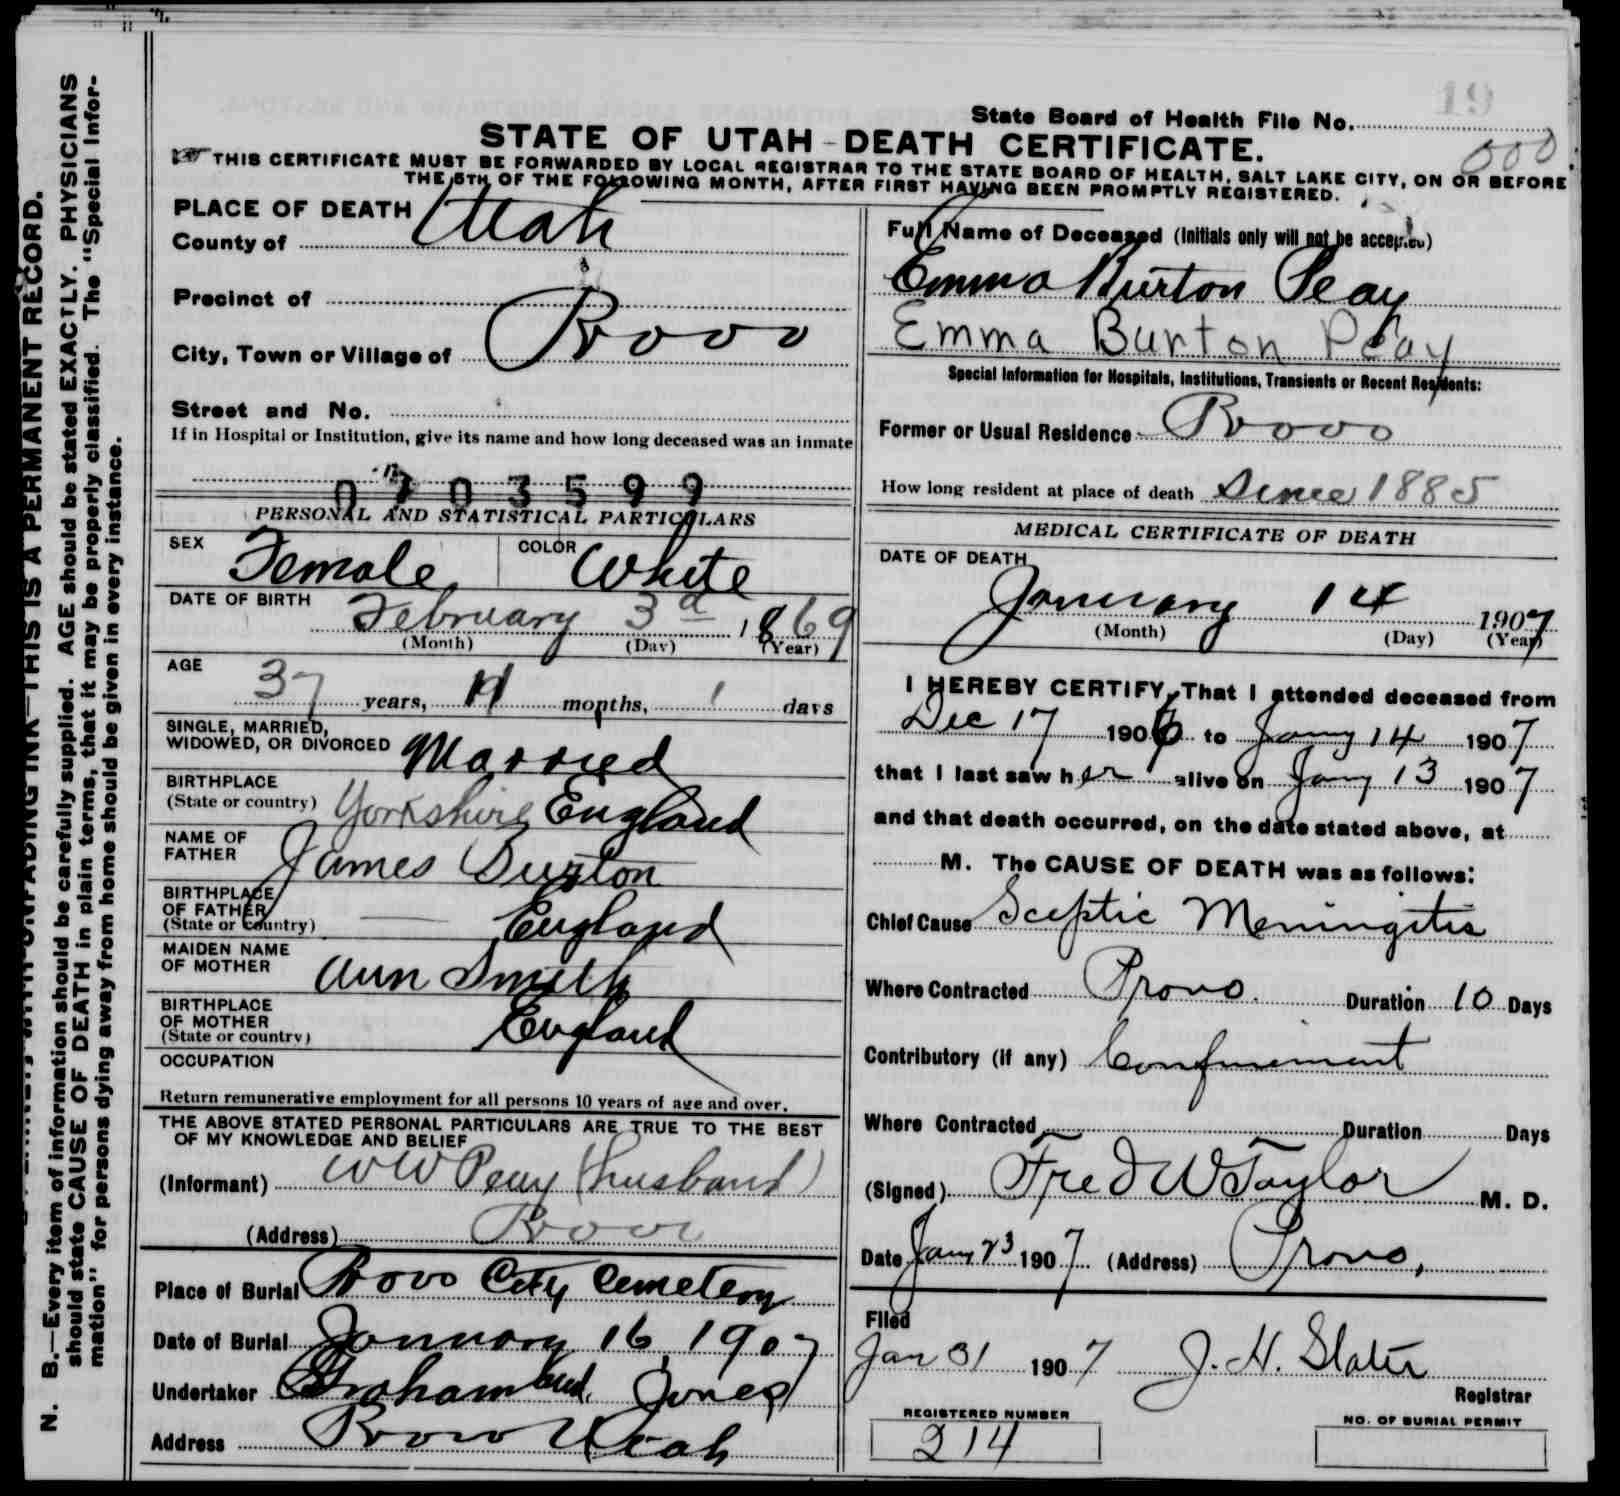 N. B.—Every item of information should be carefully supplied. AGE should be stated EXACTLY. PHYSICIANS
should state CAUSE OF DEATH in plain terms, that it may be properly classified. The "Special Infor-
mation" for persons dying away from home should be given in every instance.
UNFADING INK—THIS IS A PERMANENT RECORD.
19
State Board of Health File No.
000
STATE OF UTAH-DEATH CERTIFICATE.
THIS CERTIFICATE MUST BE FORWARDED BY LOCAL REGISTRAR TO THE STATE BOARD OF HEALTH, SALT LAKE CITY, ON OR BEFORE
THE 5TH OF THE FOLLOWING MONTH, AFTER FIRST HAVING BEEN PROMPTLY REGISTERED.
PLACE OF DEATH
County of Utah
Precinct of
City, Town or Village of Provo
Street and No.
If in Hospital or Institution, give its name and how long deceased was an inmate
0703599
PERSONAL AND STATISTICAL PARTICULARS
SEX Female COLOR White
DATE OF BIRTH February 3d 1869
(Month) (Day) (Year)
AGE
37 years, 11 months, 1 days
SINGLE, MARRIED,
WIDOWED, OR DIVORCED Married
BIRTHPLACE
(State or country) Yorkshire England
NAME OF
FATHER James Burton
BIRTHPLACE
OF FATHER
(State or country) — England
MAIDEN NAME
OF MOTHER Ann Smith
BIRTHPLACE
OF MOTHER
(State or country) England
OCCUPATION
Return remunerative employment for all persons 10 years of age and over.
THE ABOVE STATED PERSONAL PARTICULARS ARE TRUE TO THE BEST
OF MY KNOWLEDGE AND BELIEF
(Informant) W W Peay (husband)
(Address) Provo
Place of Burial Provo City Cemetery
Date of Burial January 16, 1907
Undertaker Graham and Jones
Address Provo Utah
Full Name of Deceased (Initials only will not be accepted)
Emma Burton Peay
Emma Burton Peay
Special Information for Hospitals, Institutions, Transients or Recent Residents:
Former or Usual Residence Provo
How long resident at place of death Since 1885
MEDICAL CERTIFICATE OF DEATH
DATE OF DEATH
January 14 1907
(Month) (Day) (Year)
I HEREBY CERTIFY, That I attended deceased from
Dec 17 1906 to Jany 14 1907
that I last saw her alive on Jany 13 1907
and that death occurred, on the date stated above, at
M. The CAUSE OF DEATH was as follows:
Chief Cause Sceptic Meningitis
Where Contracted Provo. Duration 10 Days
Contributory (if any) Confinement
Where Contracted Duration Days
(Signed) Fred W Taylor M. D.
Date Jany 23 1907 (Address) Provo,
Filed
Jan 31 1907 J. H. Slater
Registrar
REGISTERED NUMBER
214
NO. OF BURIAL PERMIT